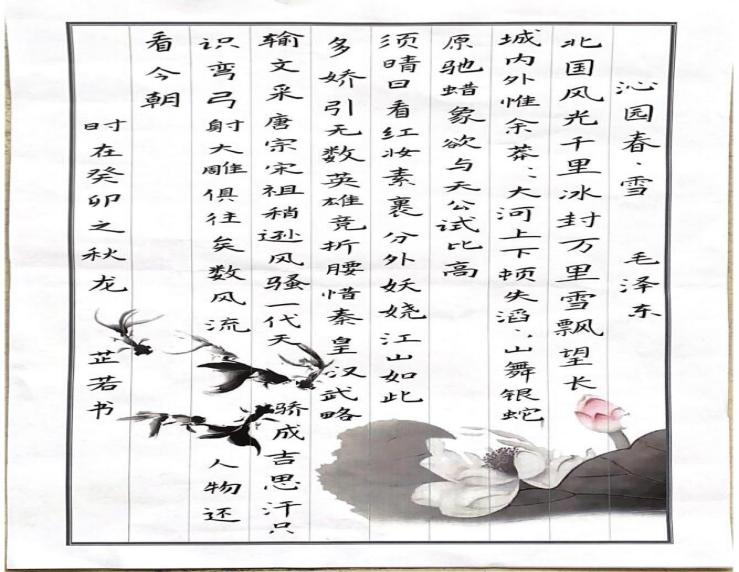 沁园春·雪 毛泽东
北国风光千里冰封万里雪飘望长
城内外惟余莽、大河上下顿失滔、山舞银蛇
原驰蜡象欲与天公试比高
须晴日看红妆素裹分外妖娆江山如此
多娇引无数英雄竞折腰惜秦皇汉武略
输文采唐宗宋祖稍逊风骚一代天骄成吉思汗只
识弯弓射大雕俱往矣数风流人物还
看今朝
时在癸卯之秋龙 芷若书